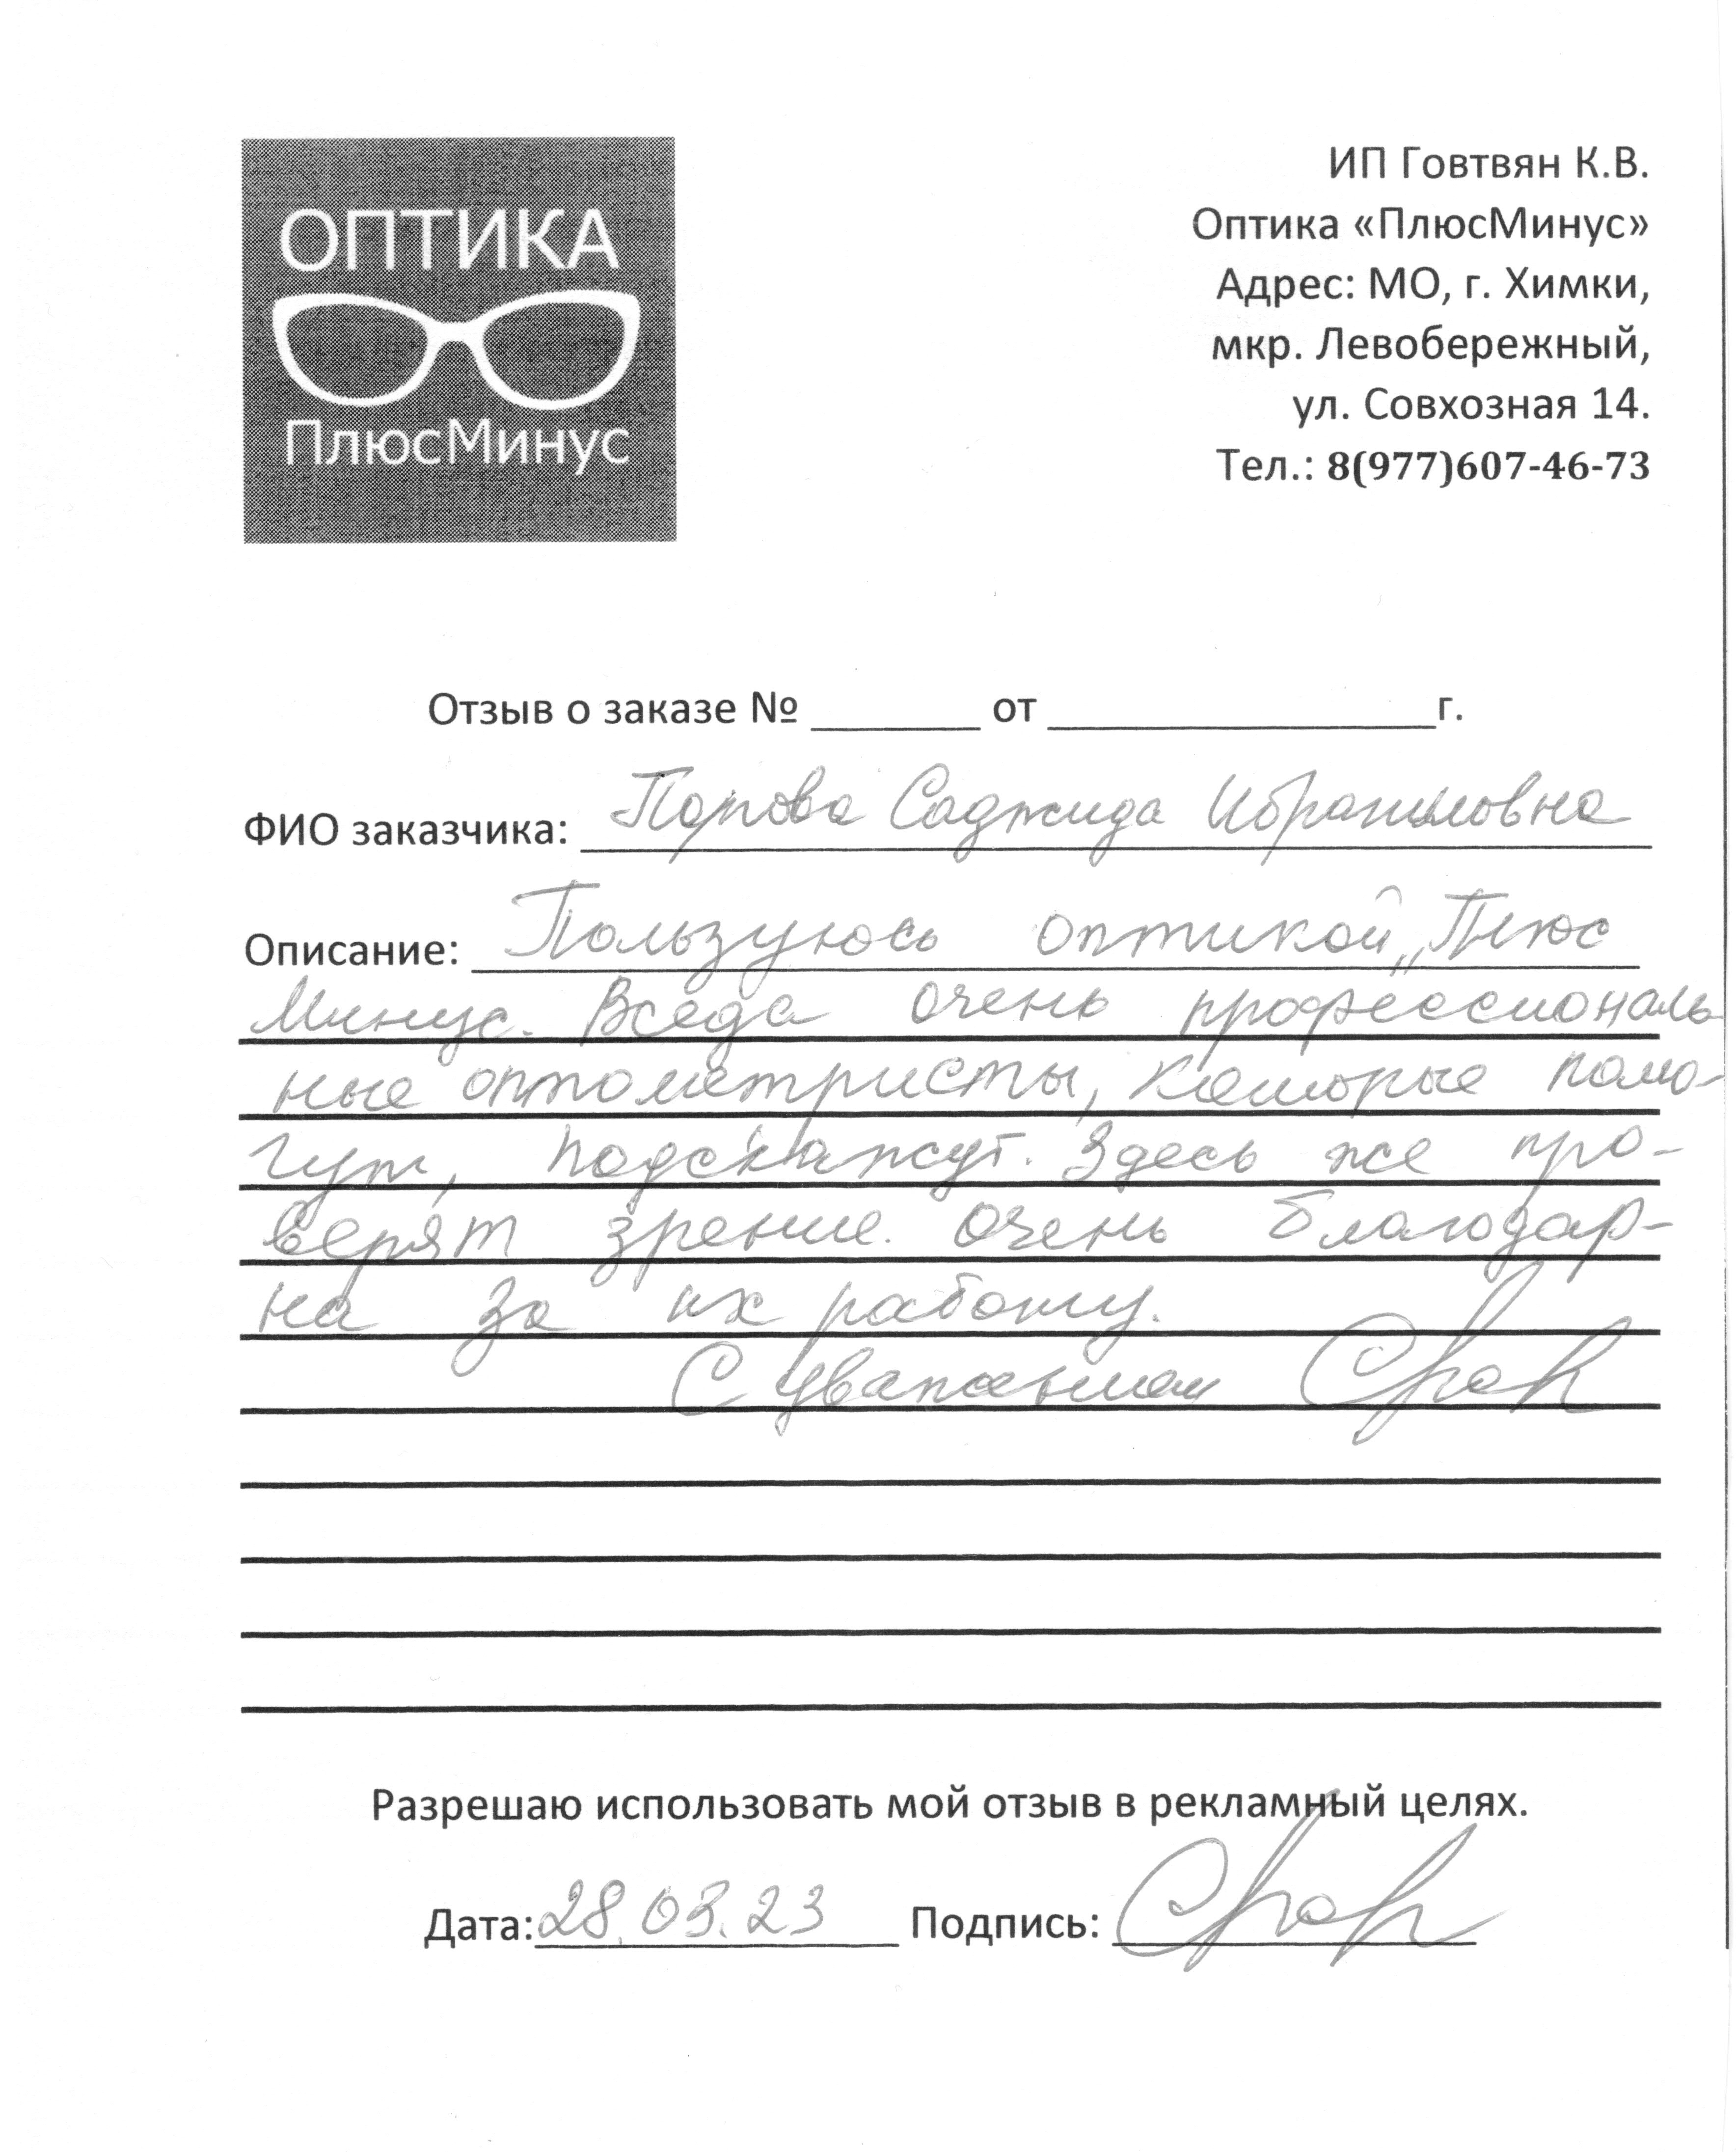 ОПТИКА
ПлюсМинус
ИП Говтвян К.В.
Оптика «ПлюсМинус»
Адрес: МО, г. Химки,
мкр. Левобережный,
ул. Совхозная 14.
Тел.: 8(977)607-46-73
Отзыв о заказе № ________ от __________________г.
ФИО заказчика: Попова Саджида Ибрагимовна
Описание: Пользуюсь оптикой „Плюс
Минус. Всегда очень профессиональ
ные оптометристы, которые помо-
гут, подскажут. Здесь же про-
верят зрение. Очень благодар-
на за их работу.
С уважением
Разрешаю использовать мой отзыв в рекламный целях.
Дата: 28.03.23 Подпись: